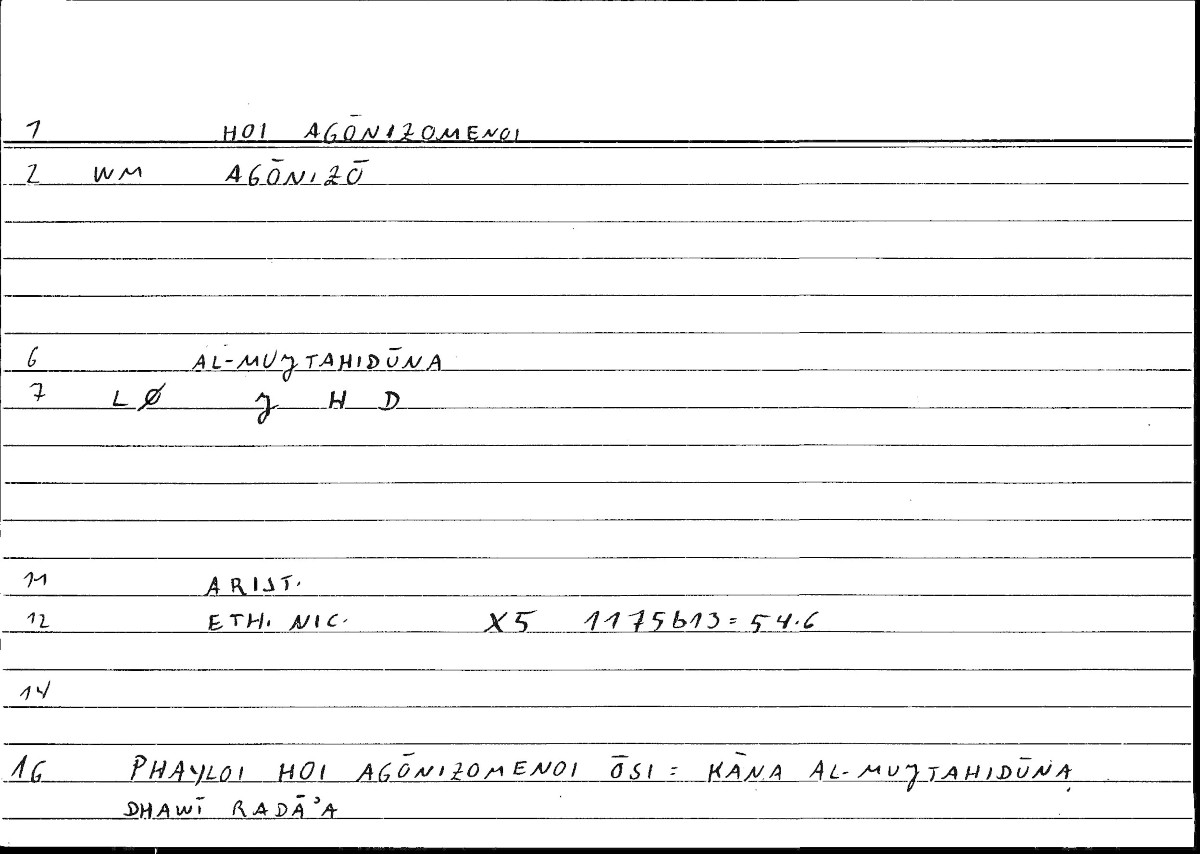 1 HOI AGŌNIZOMENOI
2 WM AGŌNIZŌ
6 AL-MUJTAHIDŪNA
7 LØ J H D
11 ARIST.
12 ETH. NIC. X5 1175b13 = 54.6
14
16 PHAYLOI HOI AGŌNIZOMENOI ŌSI = KĀNA AL-MUJTAHIDŪNA
DHAWĪ RADĀʾA